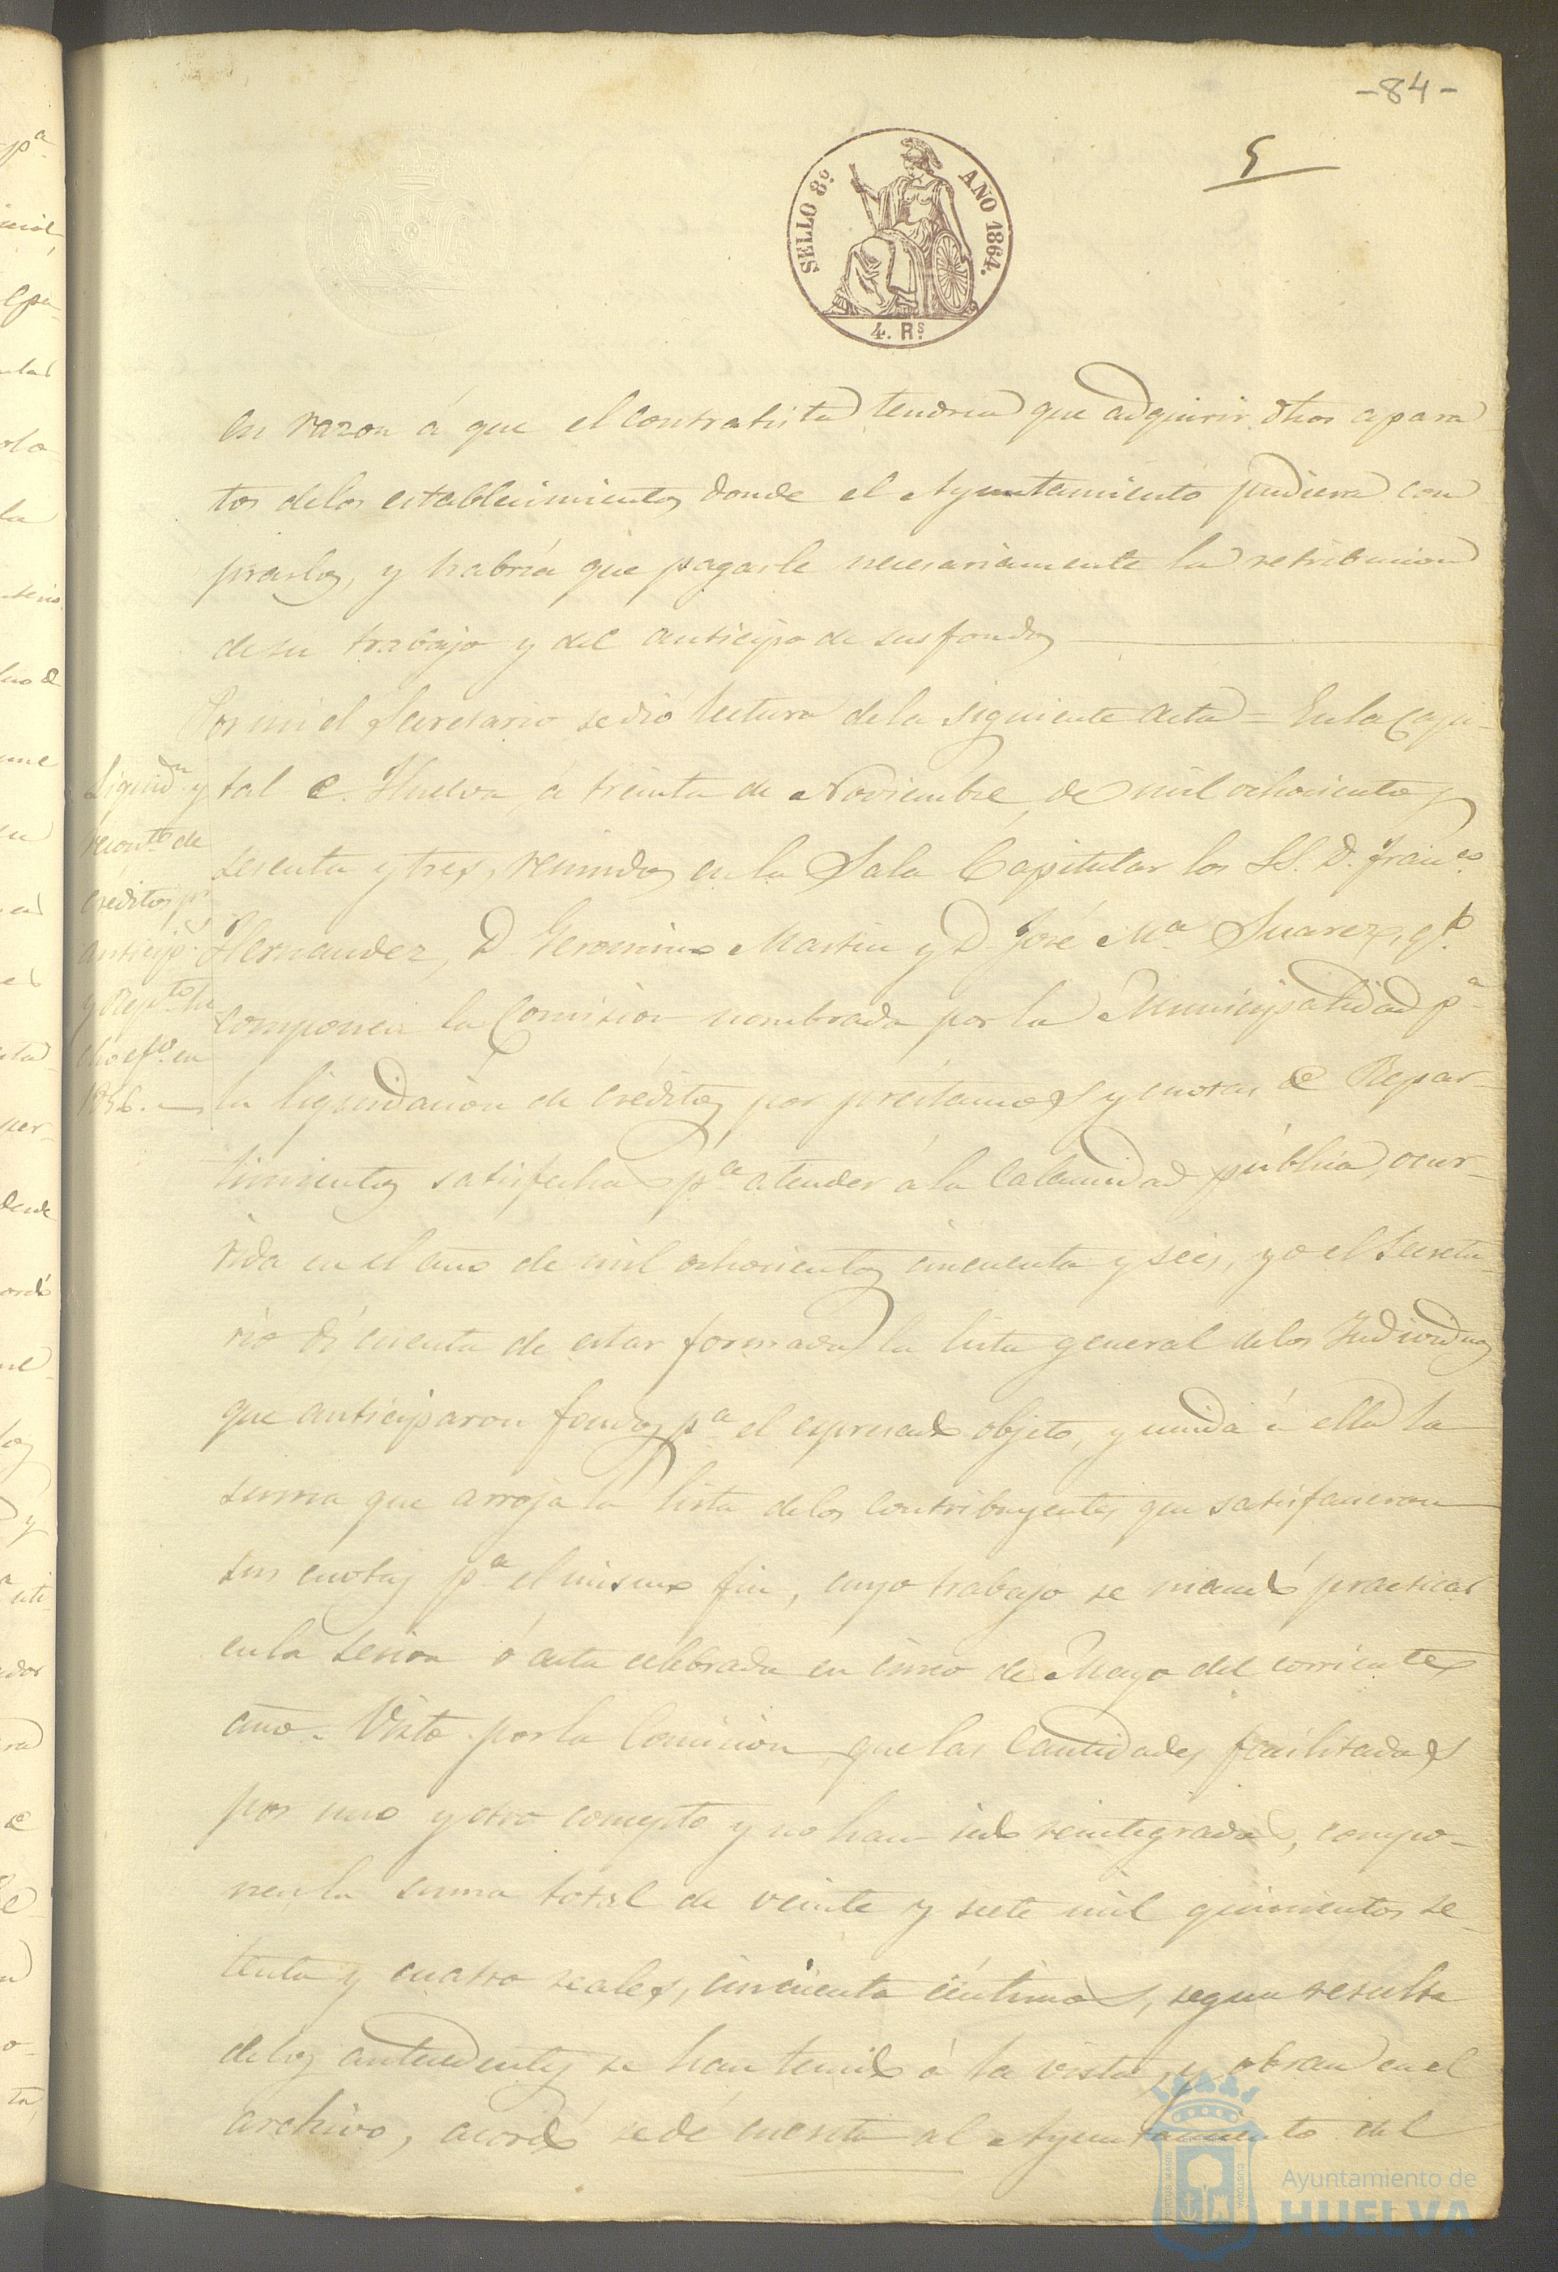 -84-
5
SELLO 8º AÑO 1864.
4. Rs.
en razon á que el contratista tendria que adquirir dhos apara
tos delos establecimientos donde el Ayuntamiento pudiera com
prarlos, y habría que pagarle necesariamente la retribucion
de su trabajo y del anticipo de sus fondos
Por mi el Secretario se dió lectura dela siguiente acta = En la Capi-
tal de Huelva á treinta de Noviembre de mil ochocientos
sesenta y tres, reunidos en la Sala Capitular los SS. D. Franco.
Hernandez, D Geronimo Martin y D José Ma Suarez, qe.
componen la Comision nombrada por la Municipalidad pa
la liquidacion de créditos por préstamos y cuotas de Repar-
timientos satisfechas pa atender á la calamidad pública, ocur-
rida en el año de mil ochocientos cincuenta y seis, yo el Secreta-
rio dí cuenta de estar formada la lista general delos Individuos
que anticiparon fondos pa el espresado objeto, y unida á ella la
suma que arroja la lista delos contribuyentes que satisfacieron
sus cuotas pa el mismo fin, cuyo trabajo se mandó practicar
en la sesion ó acta celebrada en cinco de Mayo del corriente
año. Visto por la Comision que las cantidades facilitadas
por uno y otro concepto y no han sido reintegradas, compo-
nen la suma total de veinte y siete mil quinientos se-
tenta y cuatro reales, cincuenta céntimos, segun resulta
delos antecedentes se han tenido á la vista, y obran en el
archivo, acordó se dé cuenta al Ayuntamiento del
Liquidn y
reconto de
créditos pr
anticip.s
y Repto he
cho efo. en
1856.
Ayuntamiento de
HUELVA